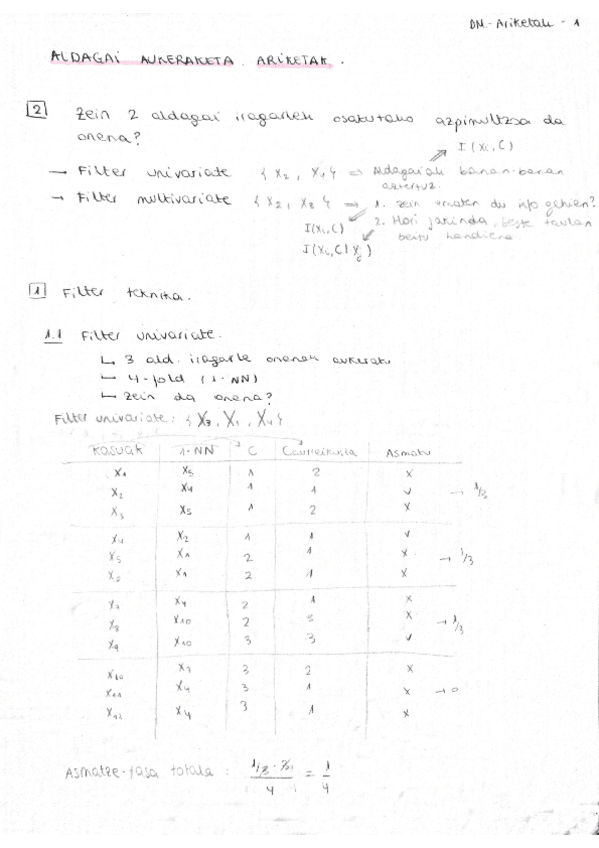 DM - Ariketak - 1
ALDAGAI AUKERAKETA. ARIKETAK.
2 Zein 2 aldagai iragarlek osatutako azpimultzoa da
onena?
I(Xi,C)
→ Filter univariate {X2, X4} ⇒ Aldagaiak banan-banan
aztertuz.
→ Filter multivariate {X2, X3} ⇒ 1. Zein ematen du info gehien?
I(Xi,C) 2. Hori jakinda, beste taulan
I(Xi,C|Xj) handiena
1 Filter teknika.
1.1 Filter univariate.
↳ 3 ald. iragarle onenak aukeratu
↳ 4-fold (1-NN)
↳ Zein da onena?
Filter univariate: {X3, X1, X4}
Kasuak 1-NN C Asmatu
X1 X5 1 2 x
X2 X4 1 1 ✓ → 1/3
X3 X5 1 2 x
X4 X2 1 1 ✓
X5 X1 2 1 x → 1/3
X1 2 1 x
X4 2 1 x
X8 X10 2 3 x → 1/3
X9 X10 3 3 ✓
X10 X7 3 2 x
X11 X4 3 1 x → 0
X12 X4 3 1 x
Asmatze-tasa totala: = 1/4
4